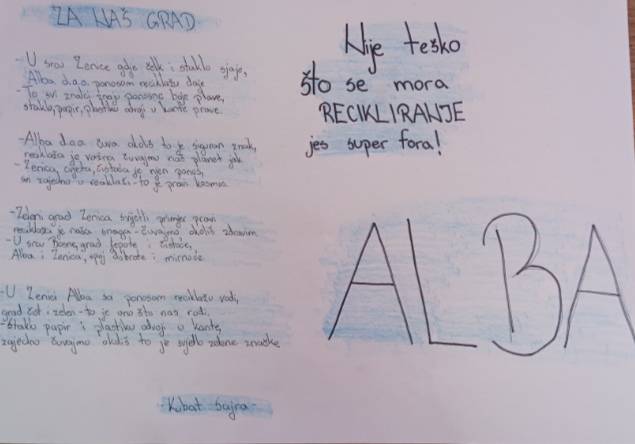 ZA NAŠ GRAD
- U srcu Zenice gdje čelik i staklo sjaje,
Alba d.o.o. ponosom reciklažu daje
- To svi znalci znaju ponosne boje plave,
staklo, papir, plastiku odvoji u kante prave.
- Alba d.o.o. čuva okoliš to je siguran znak,
reciklaža je važna čuvajmo naš planet jak
- Zenica, cvjeta, čistoća je njen ponos,
svi zajedno u reciklaži - to je pravi kosmos.
- Zeleni grad Zenica svijetli primjer pravi
reciklaža je naša snaga - čuvajmo okoliš zdravim
- U srcu Bosne, grad ljepote i čistoće,
Alba i Zenica, spoj dobrote i mirnoće.
- U Zenici Alba sa ponosom reciklažu vodi,
grad čist i zelen - to je ono što nas rodi.
- Staklo papir i plastiku odvoji u kante,
zajedno čuvajmo okoliš to je svjetlo zelene značke
- Kubat Sajra -
Nije teško
što se mora
RECIKLIRANJE
jes super fora!
ALBA